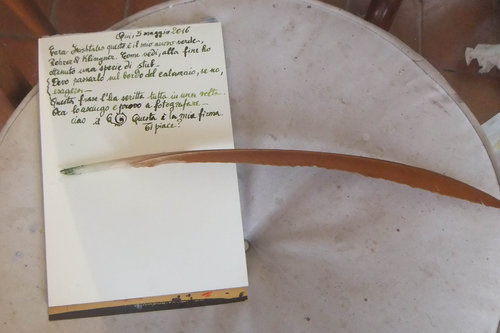 Qui, 5 maggio 2016
Cara questo è il mio nuovo verde,
Rohrer & Klingner. Come vedi, alla fine ho
ottenuto una specie di stub.
Devo passarlo sul bordo del calamaio, se no,
esagera.
Questa frase l'ho scritta tutta in una volta.
Ora lo asciugo e provo a fotografare.
ciao il Questa è la mia firma.
Ti piace?